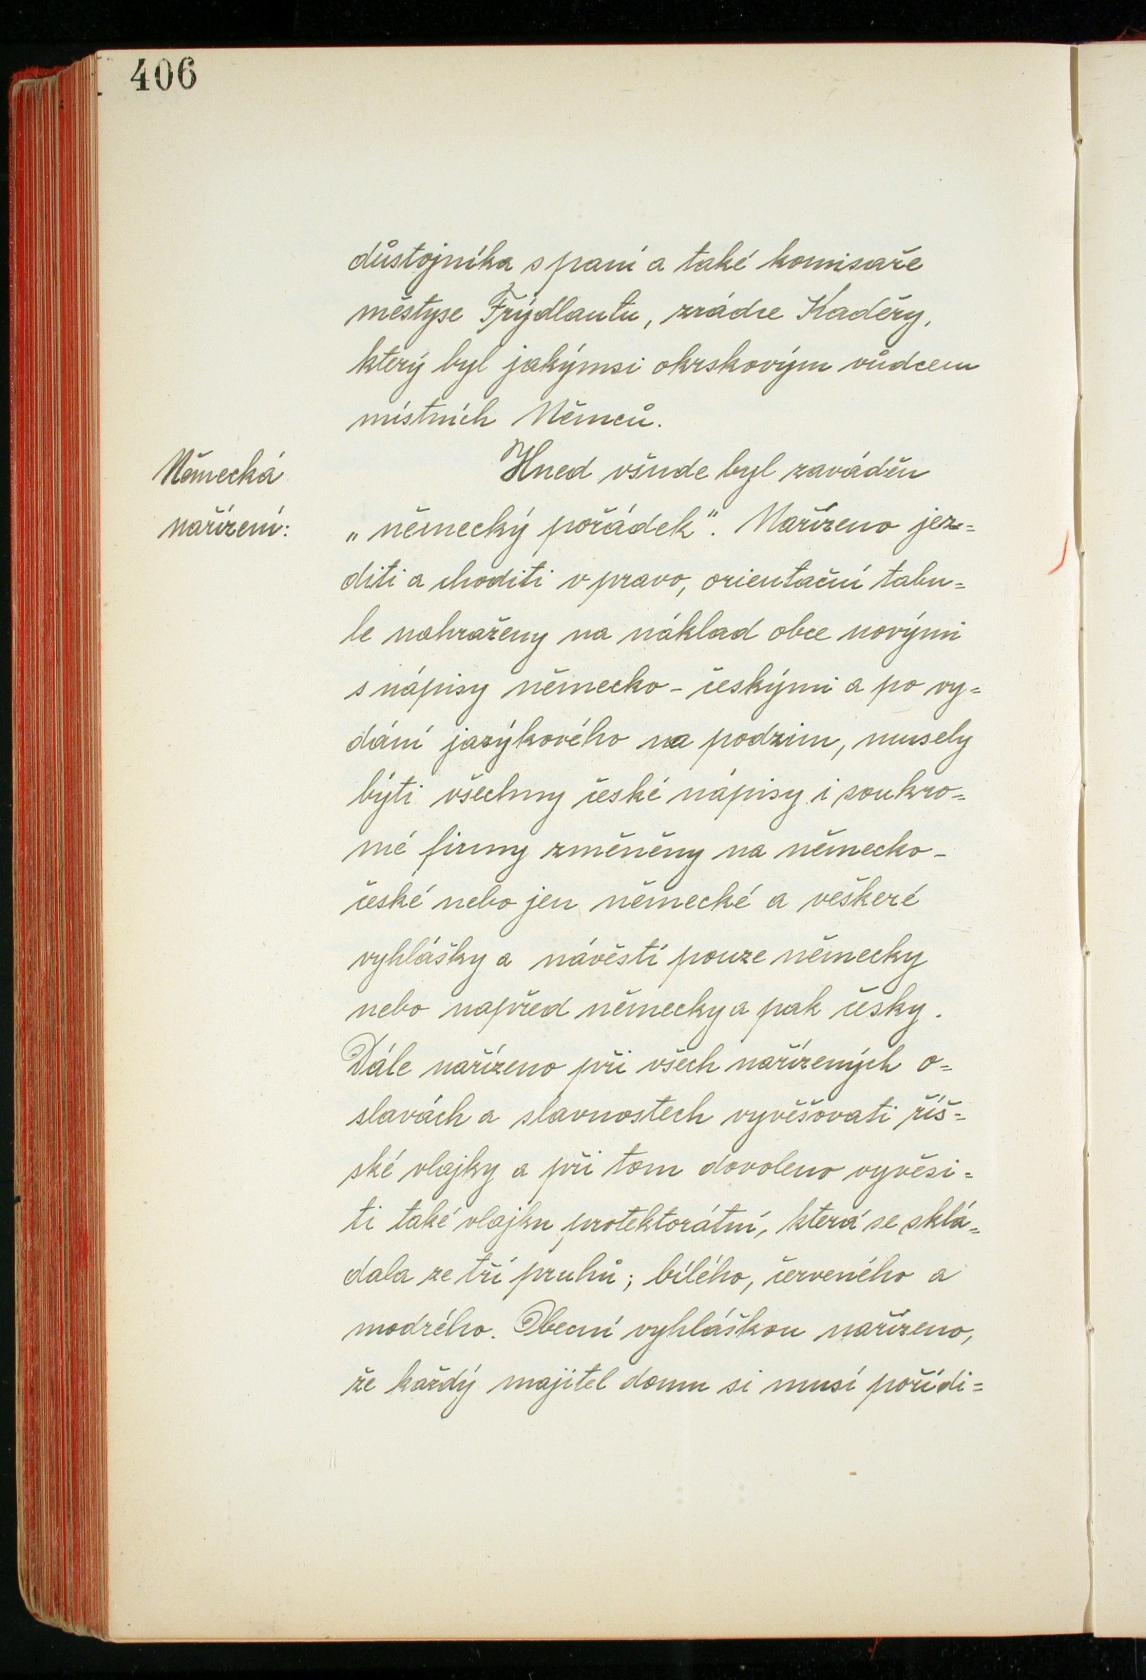 406
důstojníka s paní a také komisaře
městyse Frýdlantu, zrádce Kaděry,
který byl jakýmsi okrskovým vůdcem
místních Němců.
Německá
nařízení:
Hned všude byl zaváděn
„německý pořádek". Nařízeno jez=
diti a choditi v pravo, orientační tabu=
le nahraženy na náklad obce novými
s nápisy německo - českými a po vy=
dání jazýkového na podzim, musely
býti všechny české nápisy i soukro=
mé firmy změněny na německo -
české nebo jen německé a veškeré
vyhlášky a návěstí pouze německy
nebo napřed německy a pak česky.
Dále nařízeno při všech nařízených o=
slavách a slavnostech vyvěšovati říš=
ské vlajky a při tom dovoleno vyvěsi=
ti také vlajku protektorátní, která se sklá=
dala ze tří pruhů; bílého, červeného a
modrého. Obecní vyhláškou nařízeno,
že každý majitel domu si musí poříditi=